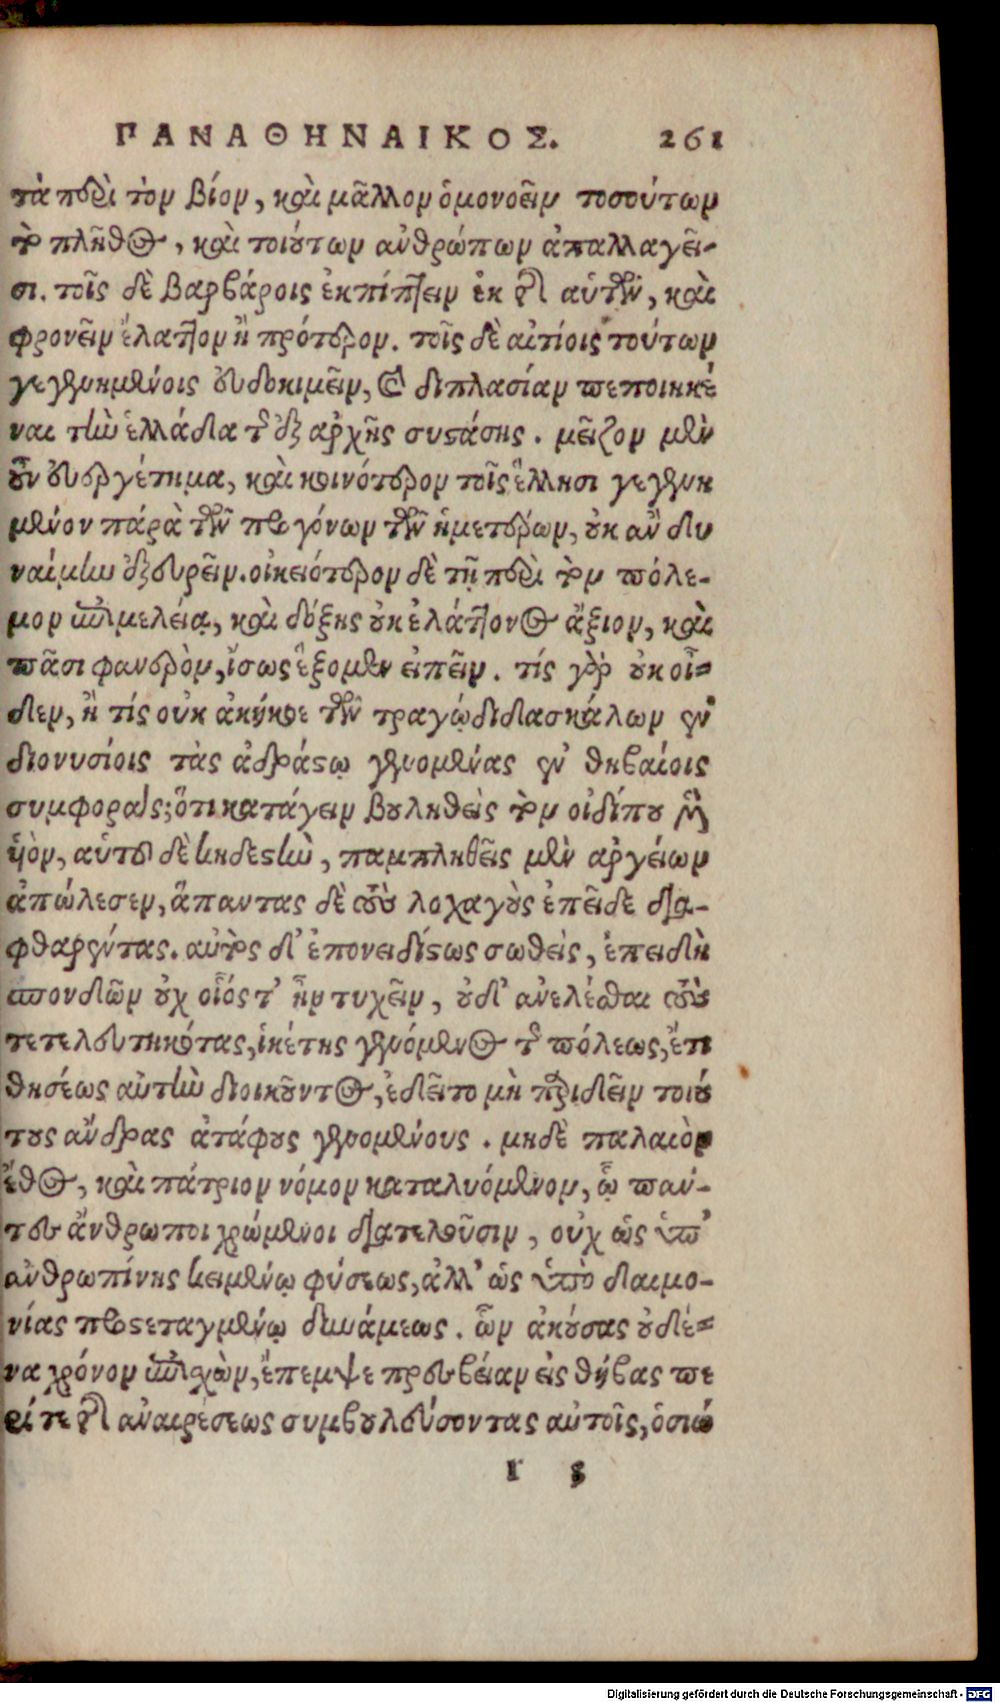 ΠΑΝΑΘΗΝΑΙΚΟΣ. 261
τὰ περὶ τὸν βίον, καὶ μᾶλλον ὁμονοεῖν τοσούτων
τὸ πλῆθος, καὶ τοιούτων ἀνθρώπων ἀπαλλαγεῖ-
σι. τοῖς δὲ βαρβάροις ἐκπίπτειν ἐκ τῆς αὑτῶν, καὶ
φρονεῖν ἔλαττον ἢ πρότερον. τοῖς δὲ αἰτίοις τούτων
γεγενημένοις εὐδοκιμεῖν, καὶ διπλασίαν πεποιηκέ
ναι τὴν ἑλλάδα τῆς ἐξ ἀρχῆς συστάσης. μεῖζον μὲν
οὖν εὐεργέτημα, καὶ κοινότερον τοῖς ἕλλησι γεγενη
μένον παρὰ τῶν προγόνων τῶν ἡμετέρων, οὐκ ἂν δυ
ναίμην ἐξευρεῖν. οἰκειότερον δὲ τῇ περὶ τὸν πόλε-
μον ἐπιμελείᾳ, καὶ δόξης οὐκ ἐλάττονος ἄξιον, καὶ
πᾶσι φανερὸν, ἴσως ἕξομεν εἰπεῖν. τίς γὰρ οὐκ οἶ=
δεν, ἢ τίς οὐκ ἀκήκοε τῶν τραγῳδιδασκάλων ἐν
διονυσίοις τὰς ἀδράστῳ γενομένας ἐν θηβαίοις
συμφοράς; ὅτι κατάγειν βουληθεὶς τὸν οἰδίπου μὲν
ὑὸν, αὑτοῦ δὲ κηδεστὴν, παμπληθεῖς μὲν ἀργείων
ἀπώλεσεν, ἅπαντας δὲ τοὺς λοχαγοὺς ἐπεῖδε δια-
φθαρέντας. αὐτὸς δ' ἐπονειδίστως σωθεὶς, ἐπειδὴ
σπονδῶν οὐχ οἷός τ' ἦν τυχεῖν, οὐδ' ἀνελέσθαι τοὺς
τετελευτηκότας, ἱκέτης γενόμενος τῆς πόλεως, ἔτι
θησέως αὐτὴν διοικοῦντος, ἐδεῖτο μὴ περιιδεῖν τοιού
τους ἄνδρας ἀτάφους γενομένους. μηδὲ παλαιὸν
ἔθος, καὶ πάτριον νόμον καταλυόμενον, ᾧ πάν-
τες ἄνθρωποι χρώμενοι διατελοῦσιν, οὐχ ὡς ὑπ'
ἀνθρωπίνης κειμένῳ φύσεως, ἀλλ' ὡς ὑπὸ δαιμο-
νίας προστεταγμένῳ δυνάμεως. ὧν ἀκούσας οὐδέ=
να χρόνον ἐπισχὼν, ἔπεμψε πρεσβείαν εἰς θήβας πε
ρί τε τῆς ἀναιρέσεως συμβουλεύσοντας αὐτοῖς, ὁσιώ
r 3
Digitalisierung gefördert durch die Deutsche Forschungsgemeinschaft - DFG